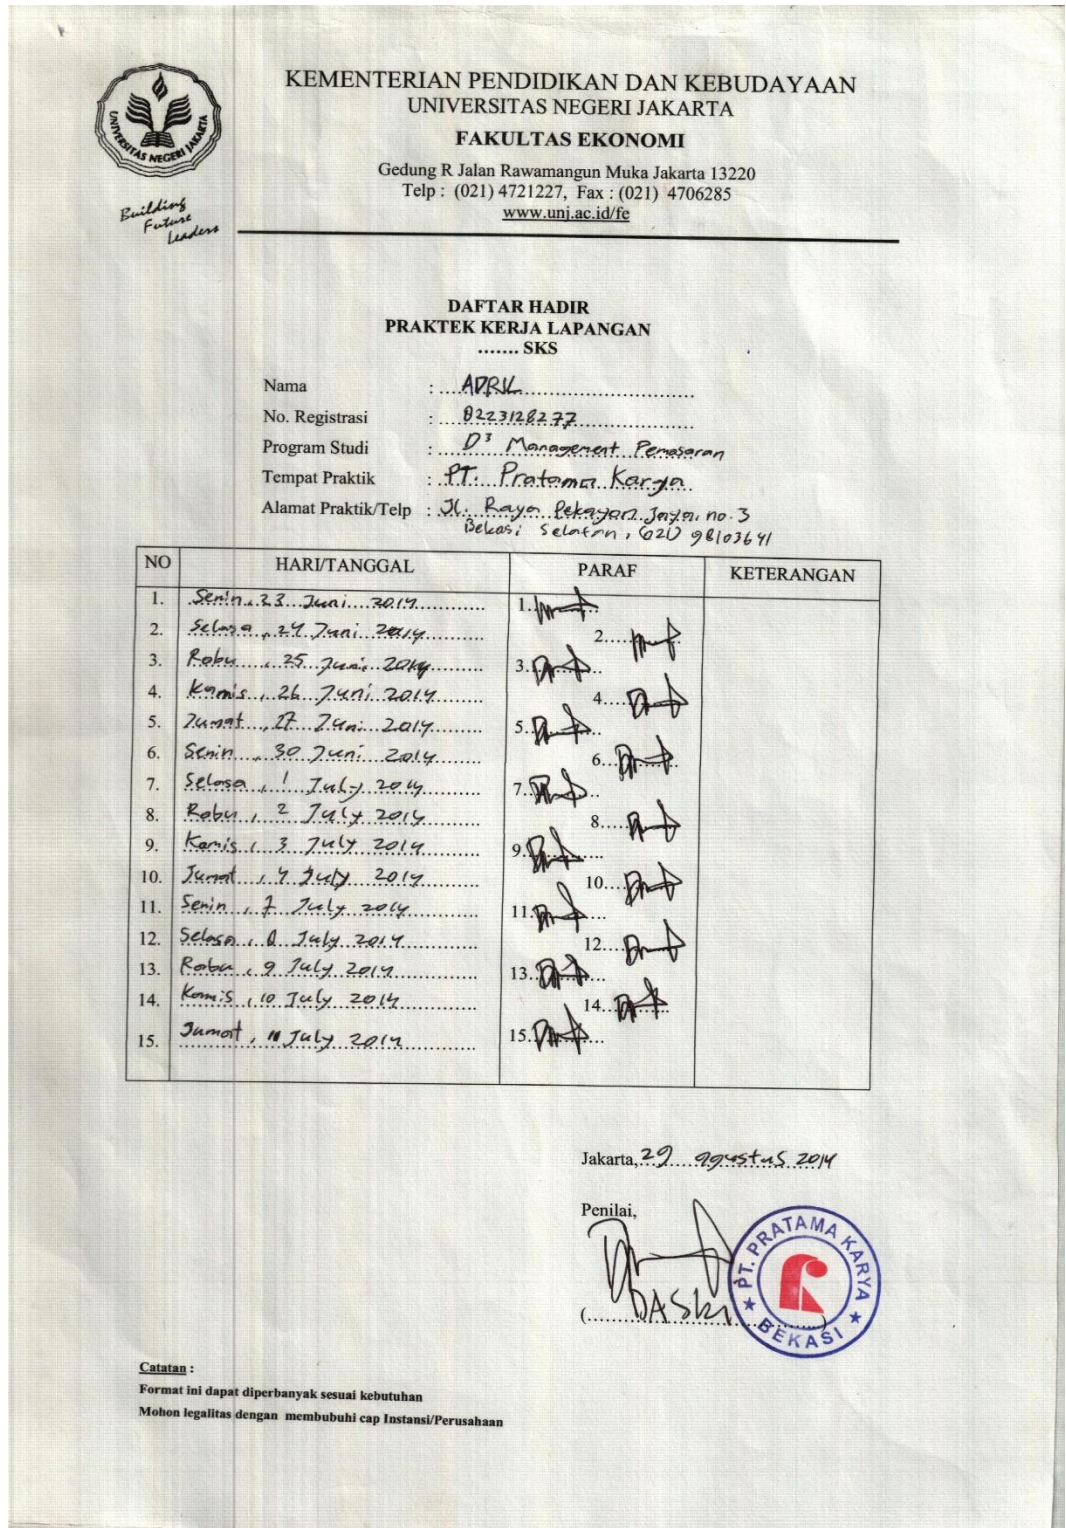 UNIVERSITAS NEGERI JAKARTA
Building
Future
Leaders
KEMENTERIAN PENDIDIKAN DAN KEBUDAYAAN
UNIVERSITAS NEGERI JAKARTA
FAKULTAS EKONOMI
Gedung R Jalan Rawamangun Muka Jakarta 13220
Telp : (021) 4721227, Fax : (021) 4706285
www.unj.ac.id/fe
DAFTAR HADIR
PRAKTEK KERJA LAPANGAN
....... SKS
Nama : ADRIL
No. Registrasi : 8223128277
Program Studi : D3 Management Pemasaran
Tempat Praktik : PT. Pratama Karya
Alamat Praktik/Telp : Jl. Raya Pekayon Jaya, no. 3
Bekasi Selatan, (021) 98103641
NO HARI/TANGGAL PARAF KETERANGAN
1. Senin, 23 Juni 2014 1.
2. Selasa, 24 Juni 2014 2.
3. Rabu, 25 Juni 2014 3.
4. Kamis, 26 Juni 2014 4.
5. Jumat, 27 Juni 2014 5.
6. Senin, 30 Juni 2014 6.
7. Selasa, 1 July 2014 7.
8. Rabu, 2 July 2014 8.
9. Kamis, 3 July 2014 9.
10. Jumat, 4 July 2014 10.
11. Senin, 7 July 2014 11.
12. Selasa, 8 July 2014 12.
13. Rabu, 9 July 2014 13.
14. Kamis, 10 July 2014 14.
15. Jumat, 11 July 2014 15.
Jakarta, 29 agustus 2014
Penilai,
(DASKI)
PT. PRATAMA KARYA
BEKASI
Catatan :
Format ini dapat diperbanyak sesuai kebutuhan
Mohon legalitas dengan membubuhi cap Instansi/Perusahaan